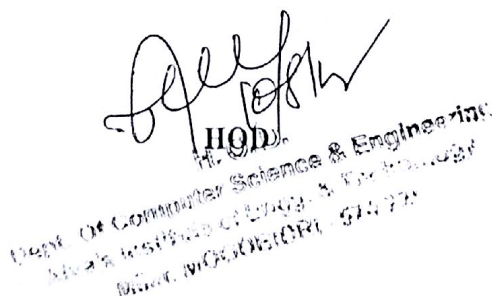 10/8/
HOD
H. O. D.
Dept. Of Computer Science & Engineering
Alva's Institute of Engg. & Technology
Mijar, MOODBIDRI - 574 225